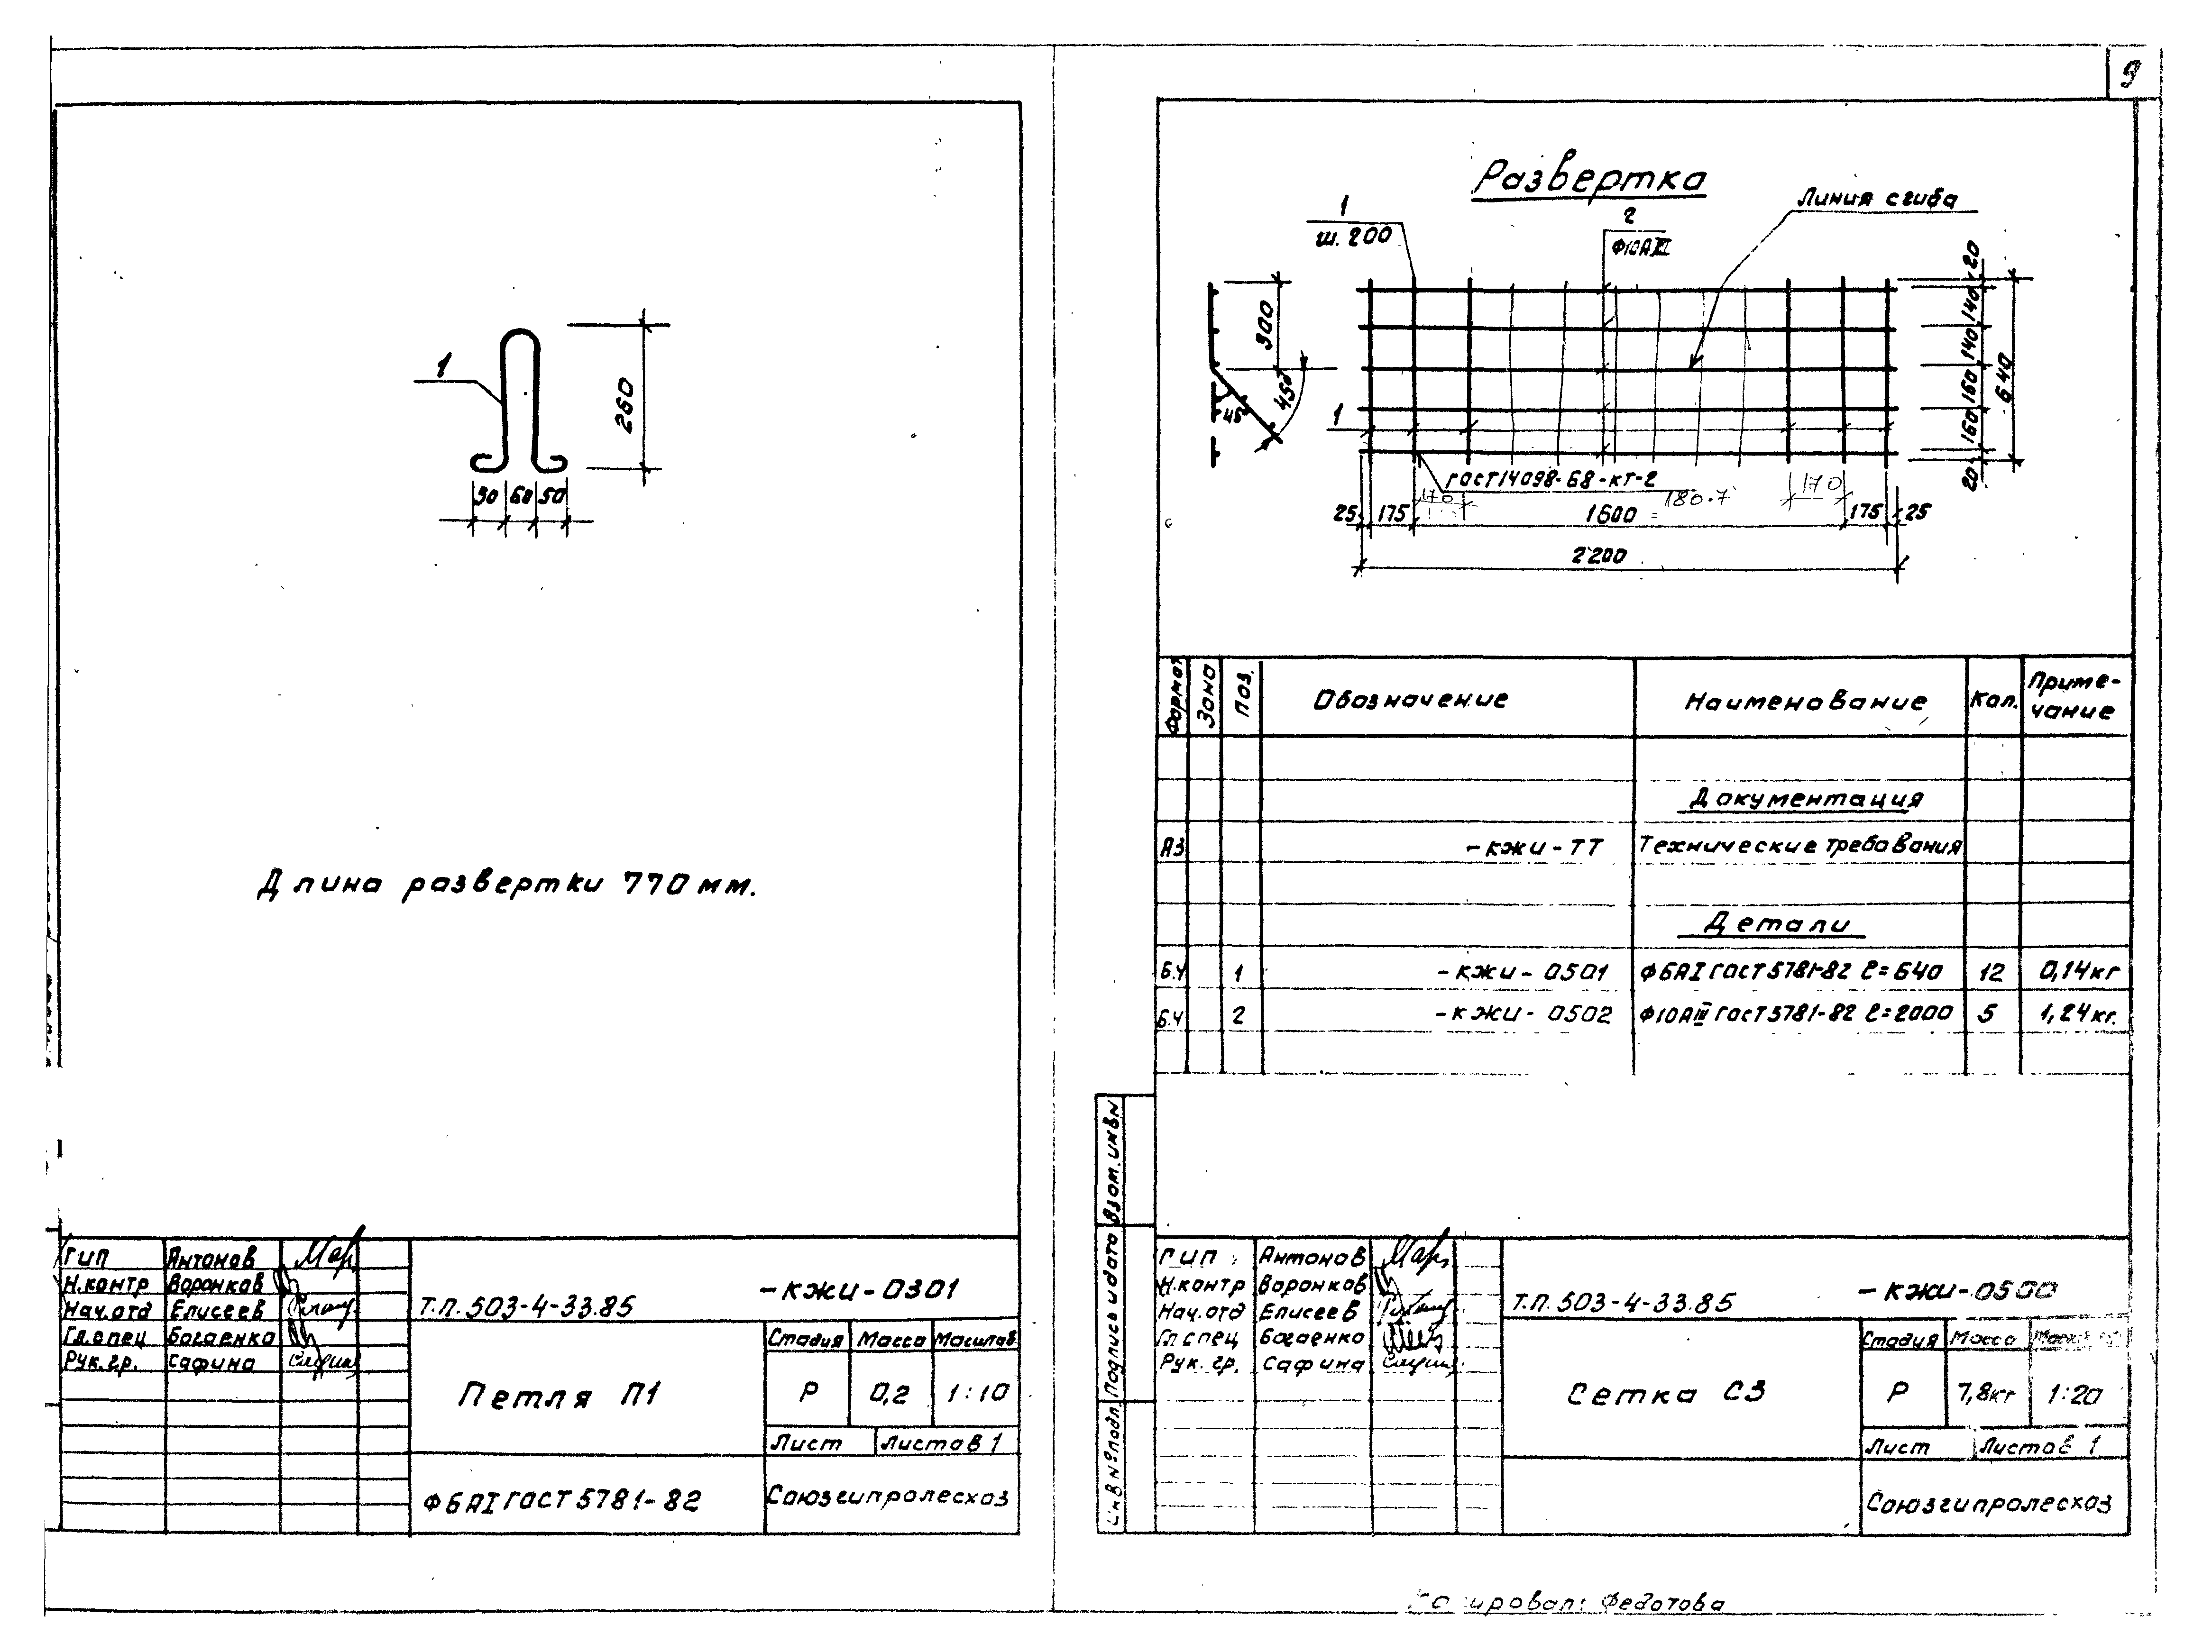 9
1
260
50 60 50
Длина развертки 770 мм.
ГИП Антонов
Н.контр Воронков
Нач.отд Елисеев
Гл.спец Богаенко
Рук.гр. Сафина
Т.П. 503-4-33.85
-КЖИ-0301
Петля П1
Стадия Масса Масштаб
Р 0,2 1:10
Лист Листов 1
Ф6АI ГОСТ 5781-82
Союзгипролесхоз
Развертка
Линия сгиба
1
ш. 200
2
Ф10АIII
300
45°
45
1
20 140 140 160 160 20
640
ГОСТ 14098-68-КТ-2
170 180·7 170
25 175 1600 = 175 25
2200
Формат Зона Поз. Обозначение Наименование Кол. Приме-
чание
Документация
А3 -КЖИ-ТТ Технические требования
Детали
Б.Ч 1 -КЖИ-0501 Ф6АI ГОСТ 5781-82 ℓ=640 12 0,14кг
Б.Ч 2 -КЖИ-0502 Ф10АIII ГОСТ 5781-82 ℓ=2000 5 1,24кг.
Взам.инв№
Подпись и дата
Инв№подл.
ГИП Антонов
Н.контр Воронков
Нач.отд Елисеев
Гл.спец Богаенко
Рук.гр. Сафина
Т.П. 503-4-33.85
-КЖИ-0500
Сетка С3
Стадия Масса
Р 7,8кг 1:20
Лист Листов 1
Союзгипролесхоз
Копировал: Федотова